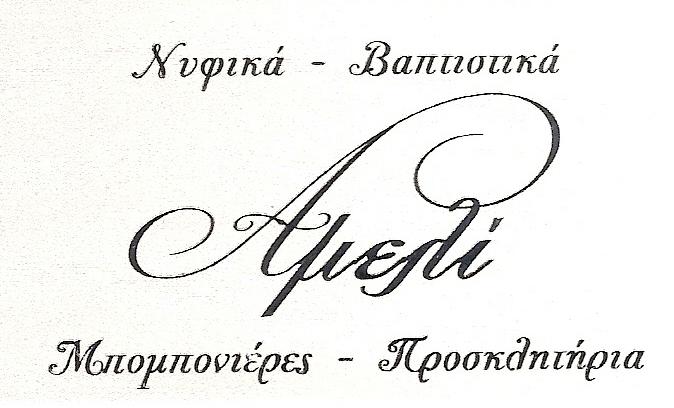 Νυφικά - Βαπτιστικά
Αμελί
Μπομπονιέρες - Προσκλητήρια